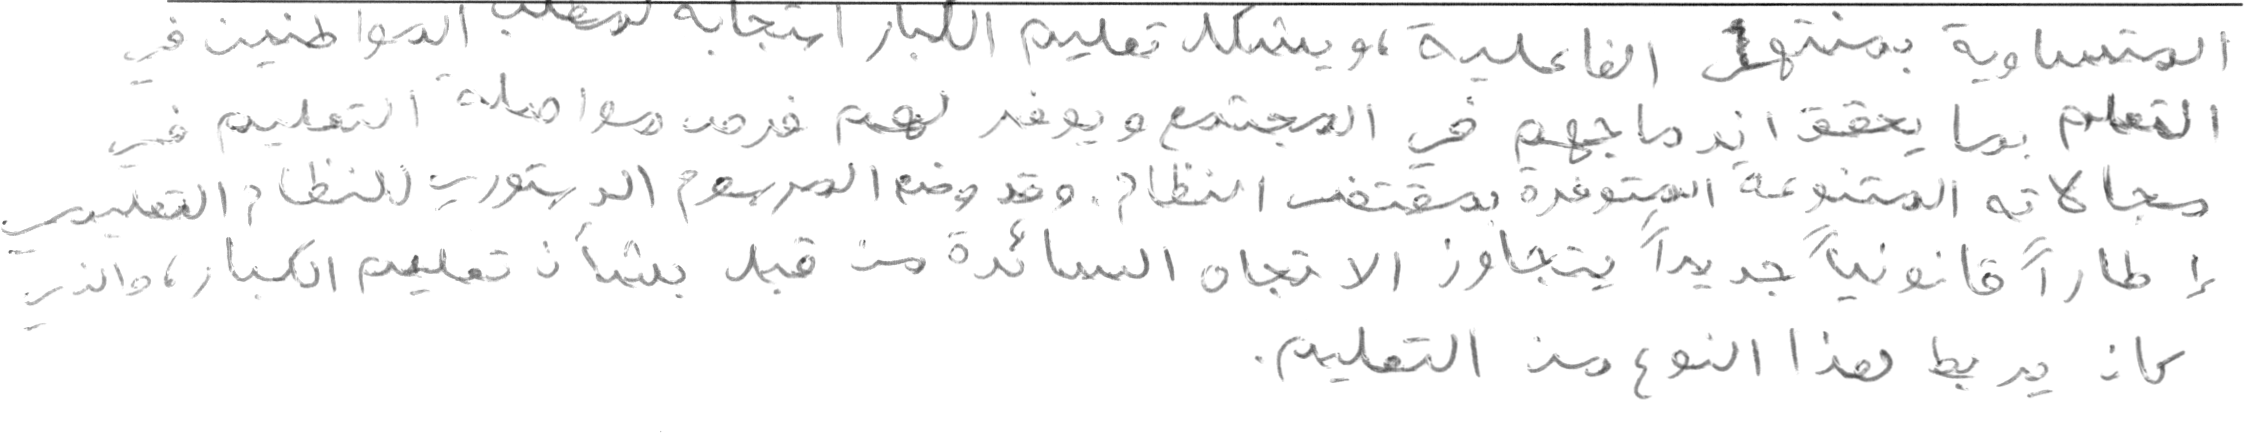 المتساوية بمنتهى الفاعلية، ويشكل تعليم الكبار استجابة لمطلب المواطنين في
التعلم بما يحقق اندماجهم في المجتمع ويوفر لهم فرص مواصلة التعليم في
مجالاته المتنوعة المتوفرة بمقتضى النظام. وقد وضع المرسوم الدستوري للنظام التعليمي
إطاراً قانونياً جديداً يتجاوز الاتجاه السائدة من قبل بشأن تعليم الكبار، والذي
كان يربط هذا النوع من التعليم.